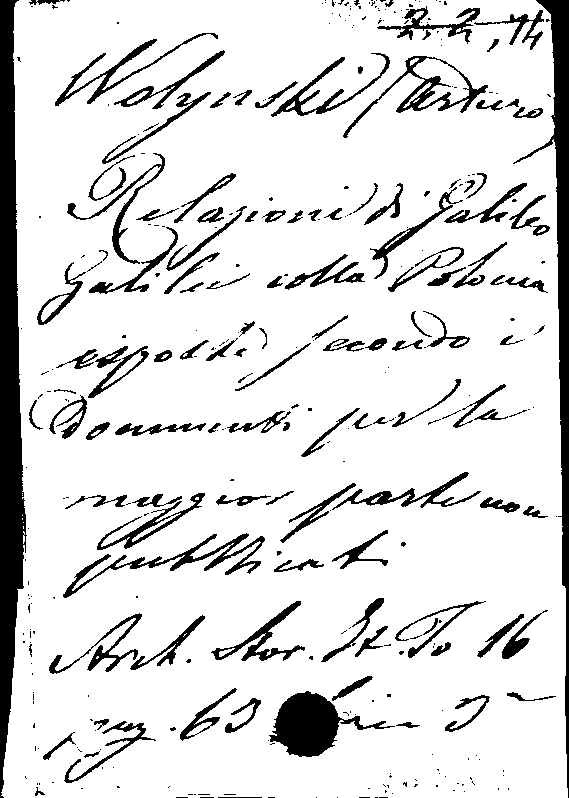 2.2,14
Wolynski (Arturo)
Relazioni di Galileo
Galilei colla Polonia
esposte secondo i
Documenti per la
maggior parte non
pubblicati
Arch. Stor. It. To 16
pag. 63 Serie 3ª